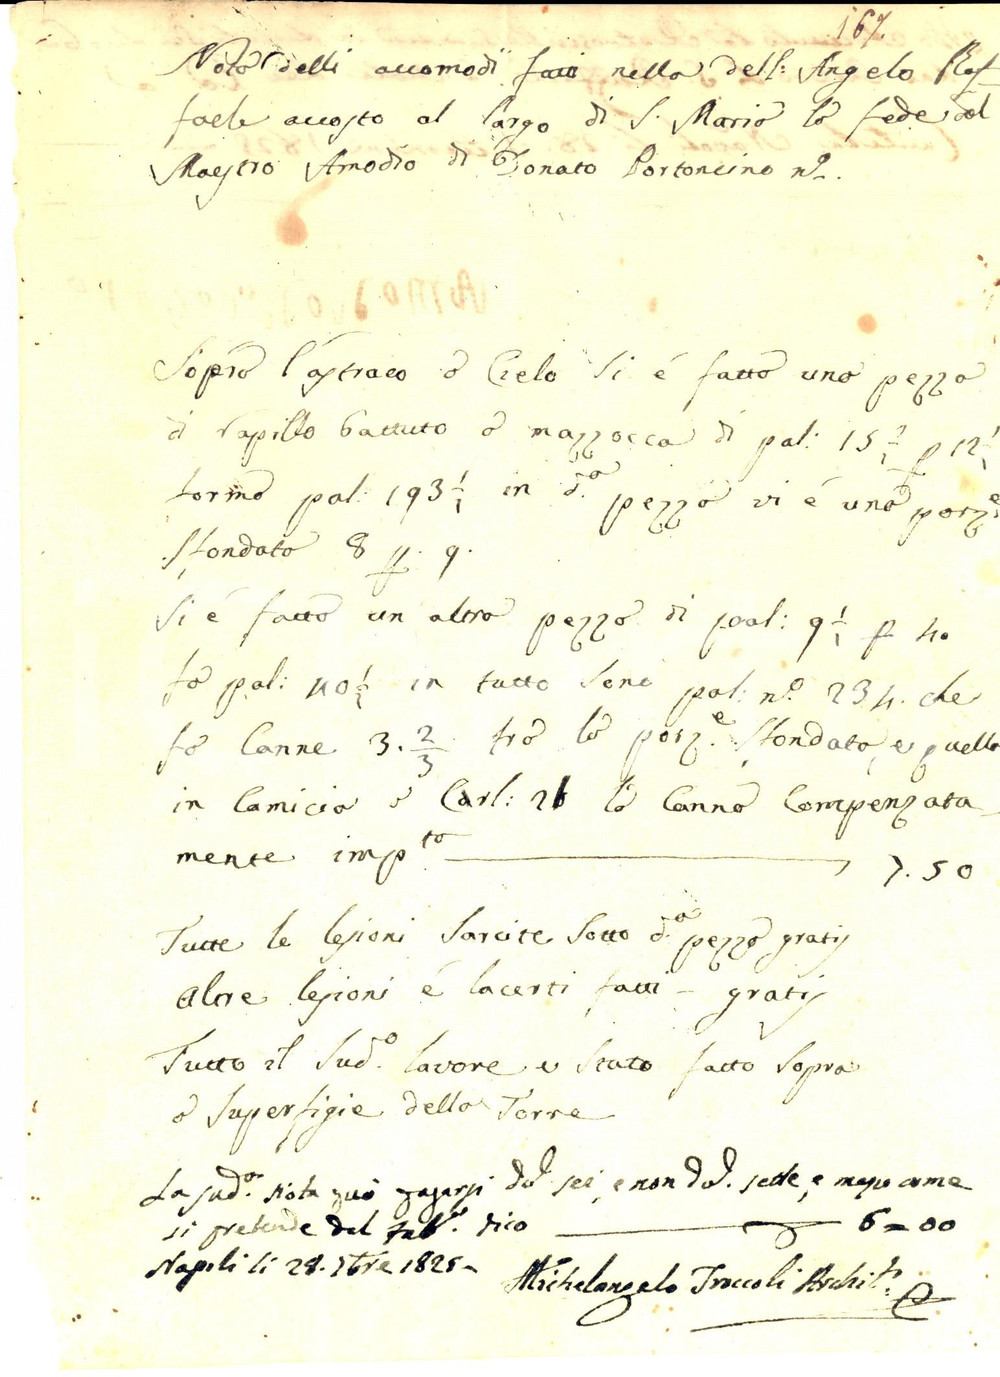 167.
Nota delli accomodi fatti nella dell: Angelo Raf
faele accosto al largo di S. Maria la fede dal
Maestro Amodio di Donato Portoncino n.º
Sopra l'astraco a Cielo si é fatto uno pezzo
di lapillo battuto a mazzocca di pal: 15 1/2 p 12 1/2
forma pal: 193 1/2 in d.ª pezzo vi é una porz.e
sfondato 8 p. 9.
Si é fatto un altro pezzo di pal: 9 1/2 p 4.
fa pal: 40 1/2 in tutto sono pal: n.º 234. che
fa Canne 3. 2/3 tra la porz.e sfondato, e quello
in Camicia a Carl: 21 la Canna Compenzata
mente imp.to 7.50
Tutte le lesioni sarcite sotto d.ª pezzo gratis
altre lesioni é lacerti fatti - gratis
Tutto il Sud.º lavore e stato fatto sopra
a superfigie della Torre
La sud.ª nota può pagarsi du.i sei, e non du.i sette, e mezo come
si pretende dal fab.re dico 6=00
Napoli li 28. 7bre 1825-
Michelangelo Troccoli Archit.to